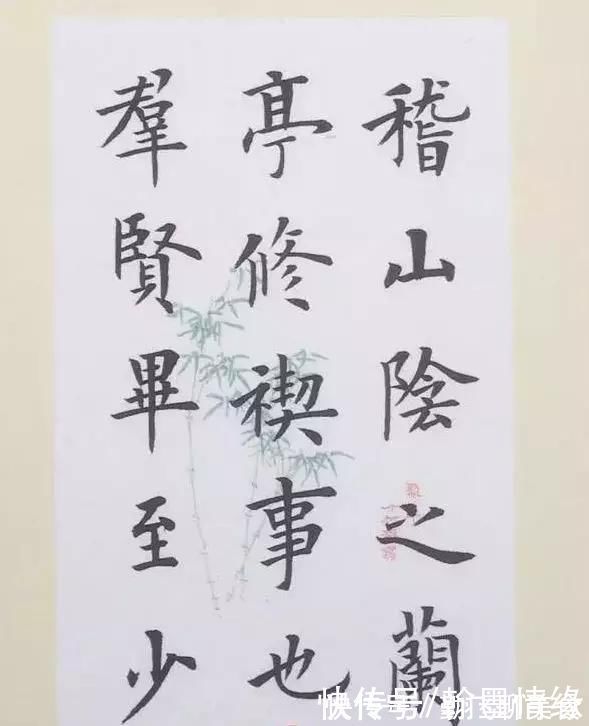 稽山陰之蘭
亭修禊事也
羣賢畢至少
快传号/翰墨情缘